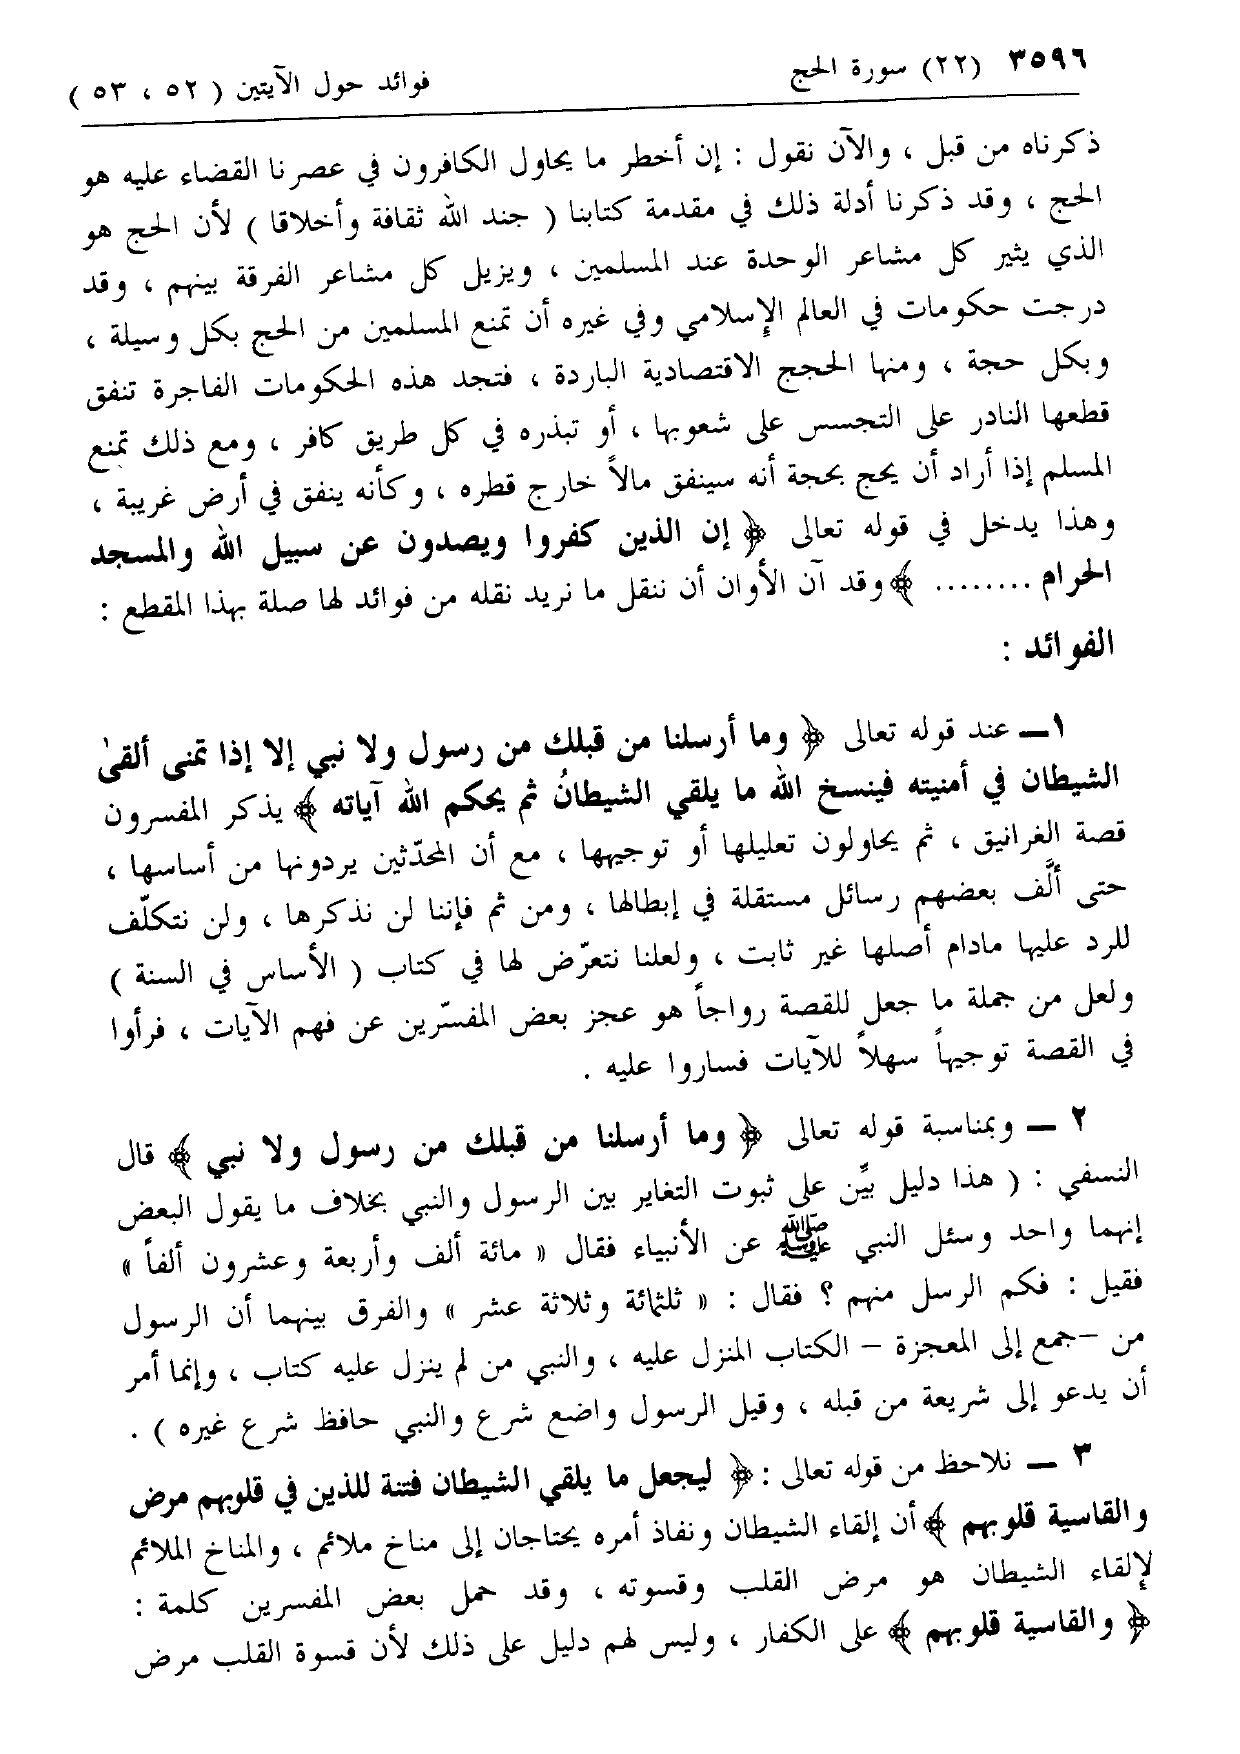 ٣٥٩٦ (٢٢) سورة الحج فوائد حول الآيتين ( ٥٢ ، ٥٣ )
ذكرناه من قبل ، والآن نقول : إن أخطر ما يحاول الكافرون في عصرنا القضاء عليه هو
الحج ، وقد ذكرنا أدلة ذلك في مقدمة كتابنا ( جند الله ثقافة وأخلاقا ) لأن الحج هو
الذي يثير كل مشاعر الوحدة عند المسلمين ، ويزيل كل مشاعر الفرقة بينهم ، وقد
درجت حكومات في العالم الإسلامي وفي غيره أن تمنع المسلمين من الحج بكل وسيلة ،
وبكل حجة ، ومنها الحجج الاقتصادية الباردة ، فتجد هذه الحكومات الفاجرة تنفق
قطعها النادر على التجسس على شعوبها ، أو تبذره في كل طريق كافر ، ومع ذلك تمنع
المسلم إذا أراد أن يحج بحجة أنه سينفق مالاً خارج قطره ، وكأنه ينفق في أرض غريبة ،
وهذا يدخل في قوله تعالى ﴿ إن الذين كفروا ويصدون عن سبيل الله والمسجد
الحرام ........ ﴾ وقد آن الأوان أن ننقل ما نريد نقله من فوائد لها صلة بهذا المقطع :
الفوائد :
١ــ عند قوله تعالى ﴿ وما أرسلنا من قبلك من رسول ولا نبي إلا إذا تمنى ألقىٰ
الشيطان في أمنيته فينسخ الله ما يلقي الشيطانُ ثم يحكم الله آياته ﴾ يذكر المفسرون
قصة الغرانيق ، ثم يحاولون تعليلها أو توجيهها ، مع أن المحدّثين يردونها من أساسها ،
حتى ألَّف بعضهم رسائل مستقلة في إبطالها ، ومن ثم فإننا لن نذكرها ، ولن نتكلّف
للرد عليها مادام أصلها غير ثابت ، ولعلنا نتعرّض لها في كتاب ( الأساس في السنة )
ولعل من جملة ما جعل للقصة رواجاً هو عجز بعض المفسّرين عن فهم الآيات ، فرأوا
في القصة توجيهاً سهلاً للآيات فساروا عليه .
٢ ــ وبمناسبة قوله تعالى ﴿ وما أرسلنا من قبلك من رسول ولا نبي ﴾ قال
النسفي : ( هذا دليل بيِّن على ثبوت التغاير بين الرسول والنبي بخلاف ما يقول البعض
إنهما واحد وسئل النبي ﷺ عن الأنبياء فقال « مائة ألف وأربعة وعشرون ألفاً »
فقيل : فكم الرسل منهم ؟ فقال : « ثلثمائة وثلاثة عشر » والفرق بينهما أن الرسول
من –جمع إلى المعجزة – الكتاب المنزل عليه ، والنبي من لم ينزل عليه كتاب ، وإنما أمر
أن يدعو إلى شريعة من قبله ، وقيل الرسول واضع شرع والنبي حافظ شرع غيره ) .
٣ ــ نلاحظ من قوله تعالى : ﴿ ليجعل ما يلقي الشيطان فتنة للذين في قلوبهم مرض
والقاسية قلوبهم ﴾ أن إلقاء الشيطان ونفاذ أمره يحتاجان إلى مناخ ملائم ، والمناخ الملائم
لإلقاء الشيطان هو مرض القلب وقسوته ، وقد حمل بعض المفسرين كلمة :
﴿ والقاسية قلوبهم ﴾ على الكفار ، وليس لهم دليل على ذلك لأن قسوة القلب مرض